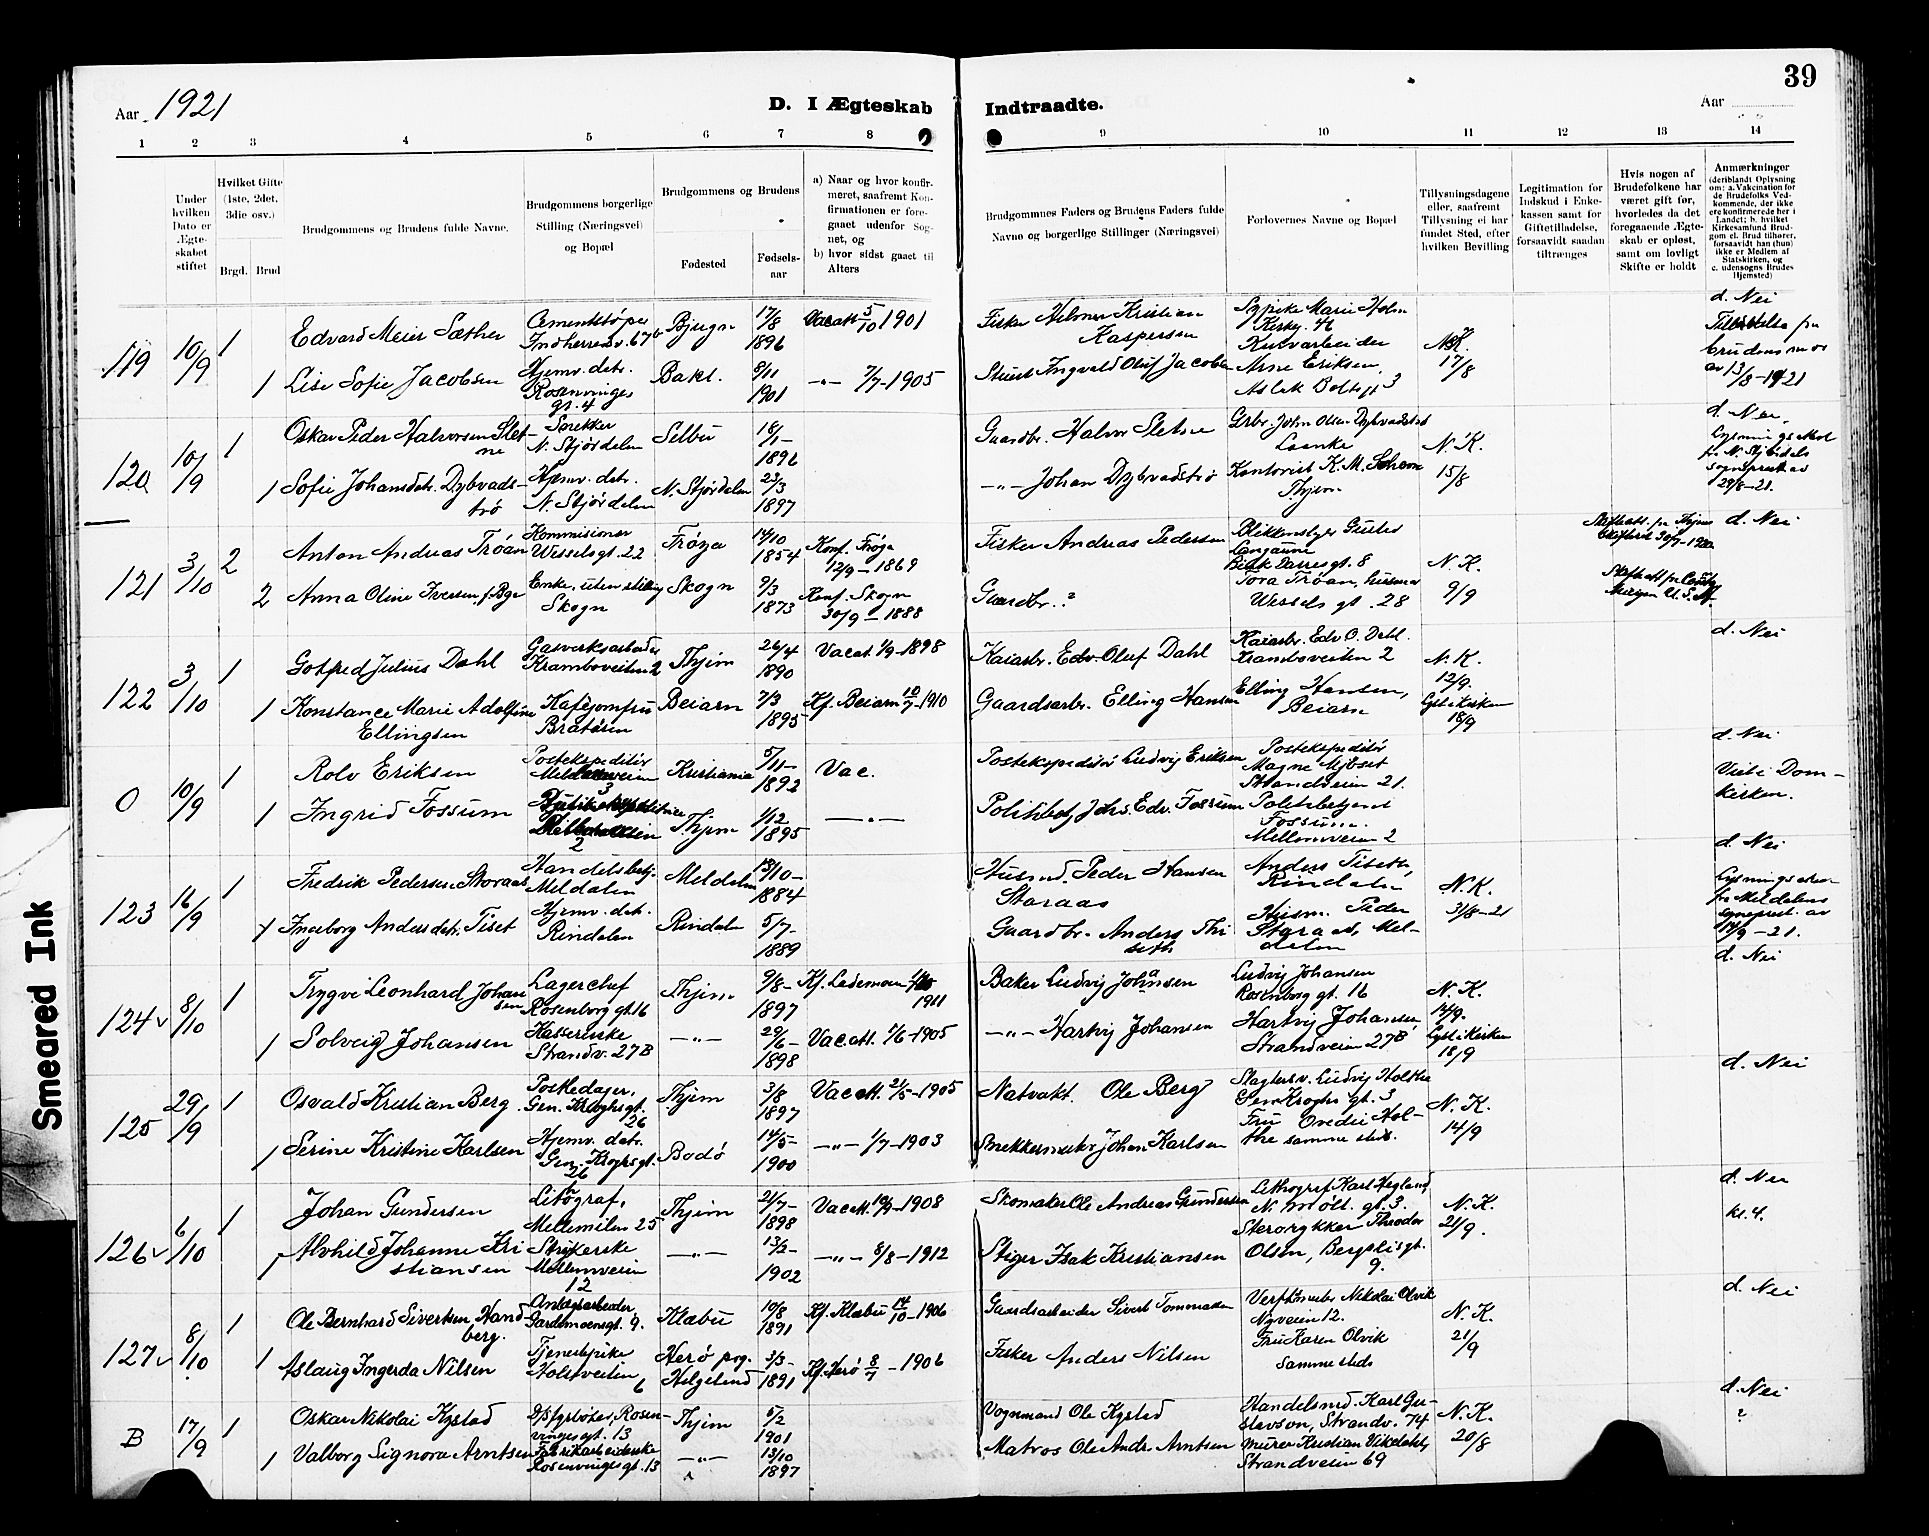 39
Aar 1921
D. I Ægteskab Indtraadte.
Aar
1 2 3 4 5 6 7 8 9 10 11 12 13 14
Under hvilken Dato er Ægteskabet stiftet
Hvilket Gifte (1ste, 2det, 3die osv.)
Brgd. Brud
Brudgommens og Brudens fulde Navne.
Brudgommens borgerlige Stilling (Næringsvei) og Bopæl
Brudgommens og Brudens
Fødested
Fødsels-aar
a) Naar og hvor konfirmeret, saafremt Konfirmationen er foregaaet udenfor Sognet, og
b) hvor sidst gaaet til Alters
Brudgommes Faders og Brudens Faders fulde Navne og borgerlige Stillinger (Næringsvei)
Forlovernes Navne og Bopæl
Tillysningsdagene eller, saafremt Tillysning ei har fundet Sted, efter hvilken Bevilling
Legitimation for Indskud i Enkekassen samt for Giftetilladelse, forsaavidt saadan tiltrænges
Hvis nogen af Brudefolkene har været gift før, hvorledes da det foregaaende Ægteskab er opløst, samt om lovligt Skifte er holdt
Anmærkninger
(deriblandt Oplysning om: a. Vakcination for de Brudefolks Vedkommende, der ikke ere konfirmerede her i Landet; b. hvilket Kirkesamfund Brudgom el. Brud tilhører, forsaavidt han (hun) ikke er Medlem af Statskirken, og c. udensogns Brudes Hjemsted)
119 10/9 1 Edvard Meier Sæther Cementstøper Indherredsv. 67b Bjugn 17/8 1896 Vacatt. 5/10 1901 Fisker Helmer Kristian Kaspersen Marie Holm Kirkeg. 46 N.K. 17/8 d. Nei
1 Lise Sofie Jacobsen Hjemv. datr. Rosenvinges gt. 4 Bakl. 9/11 1901 -"- 7/7-1905 Stuert Ingvald Oluf Jacobsen Arne Eriksen, Aslak Boltsgt 3 Tilladelse fra brudens mor av 13/8-1921
120 10/9 1 Oskar Peder Halvorsen Sletne N. Stjørdalen Selbu 18/1- 1896 Gaardbr. Halvor Sletne Grbr. John Olsen Dybvadstrø Laanke N.K. 15/8 d. Nei
1 Sofie Johansdtr. Dybvadstrø Hjemv. datr. N. Stjørdalen N. Stjørdalen 23/3 1897 -"- Johan Dybvadstrø Kontorist K. M. Thjem Lysningsattest fr. N. Stjørdals sogneprest av 29/8-21.
121 3/10 2 Anton Andreas Trøan Kommisioner Wesselsgt. 22 Frøya 14/10 1854 Konf. Frøya 12/9-1869 Fisker Andreas Pedersen Blikkenslager Gustav Langaune N.K. 9/9 Skifteatt. fra Thjems Skifteret 30/7-1920 d. Nei
2 Anna Oline Iversen f. Bye Enke, uten stilling Skogn Skogn 9/3 1873 Konf. Skogn 30/9-1888 Gaardbr. ? Tora Trøan, Wessels gt. 28
122 3/10 1 Gotfred Julius Dahl Gasverksarbeider Kramboveiten 2 Thjem 26/4 1890 Vacat. 1/9-1898 Kaiarbr. Edv. Oluf Dahl Kaiarbr. Edv. O. Dahl. Kramboveiten 2 N.K. 12/9. d. Nei
1 Konstance Marie Adolfine Ellingsen Kafejomfru Bratøren Beiarn 7/3 1895 Kf. Beiarn 10/7-1910 Gaardsarbr. Elling Hansen Elling Hansen, Beiarn Lyst i kirken 18/9
0 10/9 1 Rolv Eriksen Postekspeditør Mellemveien 3 Kristiania 5/11- 1892 Vac. Postekspeditør Ludvig Eriksen Postekspeditør Magne Mjøset Strandveien 21. d. Nei
1 Ingrid Fossum 2 Thjem 1/12 1895 -"- Politibetj. Johs. Edv. Fossum Politibetjent Fossum. Mellemveien 2 Viet i Domkirken.
123 16/9 1 Fredrik Pedersen Storaas Handelsbetj. Meldalen Meldalen 18/10- 1884 Husmd. Peder Hansen Storaas Anders Tiseth, Rindalen N.K. 31/8-21 d. Nei
1 Ingeborg Andersdatr. Tiset Hjemv. datr. Rindalen Rindalen 5/7- 1889 Gaardbr. Anders Thiseth Husm. Peder Storaas, Meldalen Lysningsattest fra Meldalens sogneprest av 14/9-21.
124 8/10 1 Trygve Leonhard Johansen Lagerchef Rosenborg gt. 16 Thjem 9/8- 1897 Kf. Lademoen 1911 Baker Ludvig Johansen Ludvig Johansen Rosenborg gt. 16 N.K. 14/9. d. Nei
1 Solveig Johansen Kassererske Strandv. 27B -"- 29/6- 1898 Vac. att. 1/6-1905 -"- Hartvig Johansen Hartvig Johansen, Strandveien 27B Lyst i kirken 18/9
125 29/9 1 Osvald Kristian Berg Gen. Kroghsgt. 26 Thjem 3/8 1897 Vac att. 21/5-1905 Natvakt. Ole Berg Slagtersv. Ludvig Holthe Gen Kroghs gt. 3 N.K. 14/9 d. Nei
1 Serine Kristine Karlsen Hjemv. datr. Gen. Kroghsgt. 26 Bodø 14/5- 1900 -"- 1/7-1903 Snekkermester Johan Karlsen Fru Holthe samme sted.
126 6/10 1 Johan Gundersen Litograf, Mellemilen 25 Thjem 21/7- 1898 Vacatt. 1908 Skomaker Ole Andreas Gundersen Lithograf Karl Hegland, N. Møll. gt. 3. N.K. 21/9. d. Nei
1 Alvhild Johanne Kristiansen Strykerske Mellemveien 12 -"- 13/2- 1902 -"- 8/8-1912 Stiger Isak Kristiansen Theodor Olsen, Bergslisgt. 9. kl. 4.
127 8/10 1 Ole Bernhard Sivertsen Handberg. Anlægsarbeider, Gardemoensgt. 9. Klæbu 10/8 1891 Kf. Klæbu 14/10-1906 Gaardsarbeider Sivert Tommesen Nikolai Olvik Nyveien 12. N.K. 21/9 d. Nei
1 Aslaug Ingerda Nilsen Tjenestpike Holstveiten 6 Herø prg. Helgeland 3/3- 1891 Kf. Herø 8/7-1906 Fisker Anders Nilsen Fru Karen Olvik samme steds
B 17/9 1 Oskar Nikolai Kystad Rosenvingesgt. 13 Thjem 5/2 1901 Vognmand Ole Kystad Handelsmd. Karl Gustavson, Strandv. 74 N.K. 20/8 d. Nei ?
1 Valborg Signora Arntsen Fabrikarbeiderske Rosenvingesgt. 13 -"- 13/10 1897 Matros Ole Andr. Arntsen Murer Kristian Vikdahl, Strandveien 69
Smeared Ink